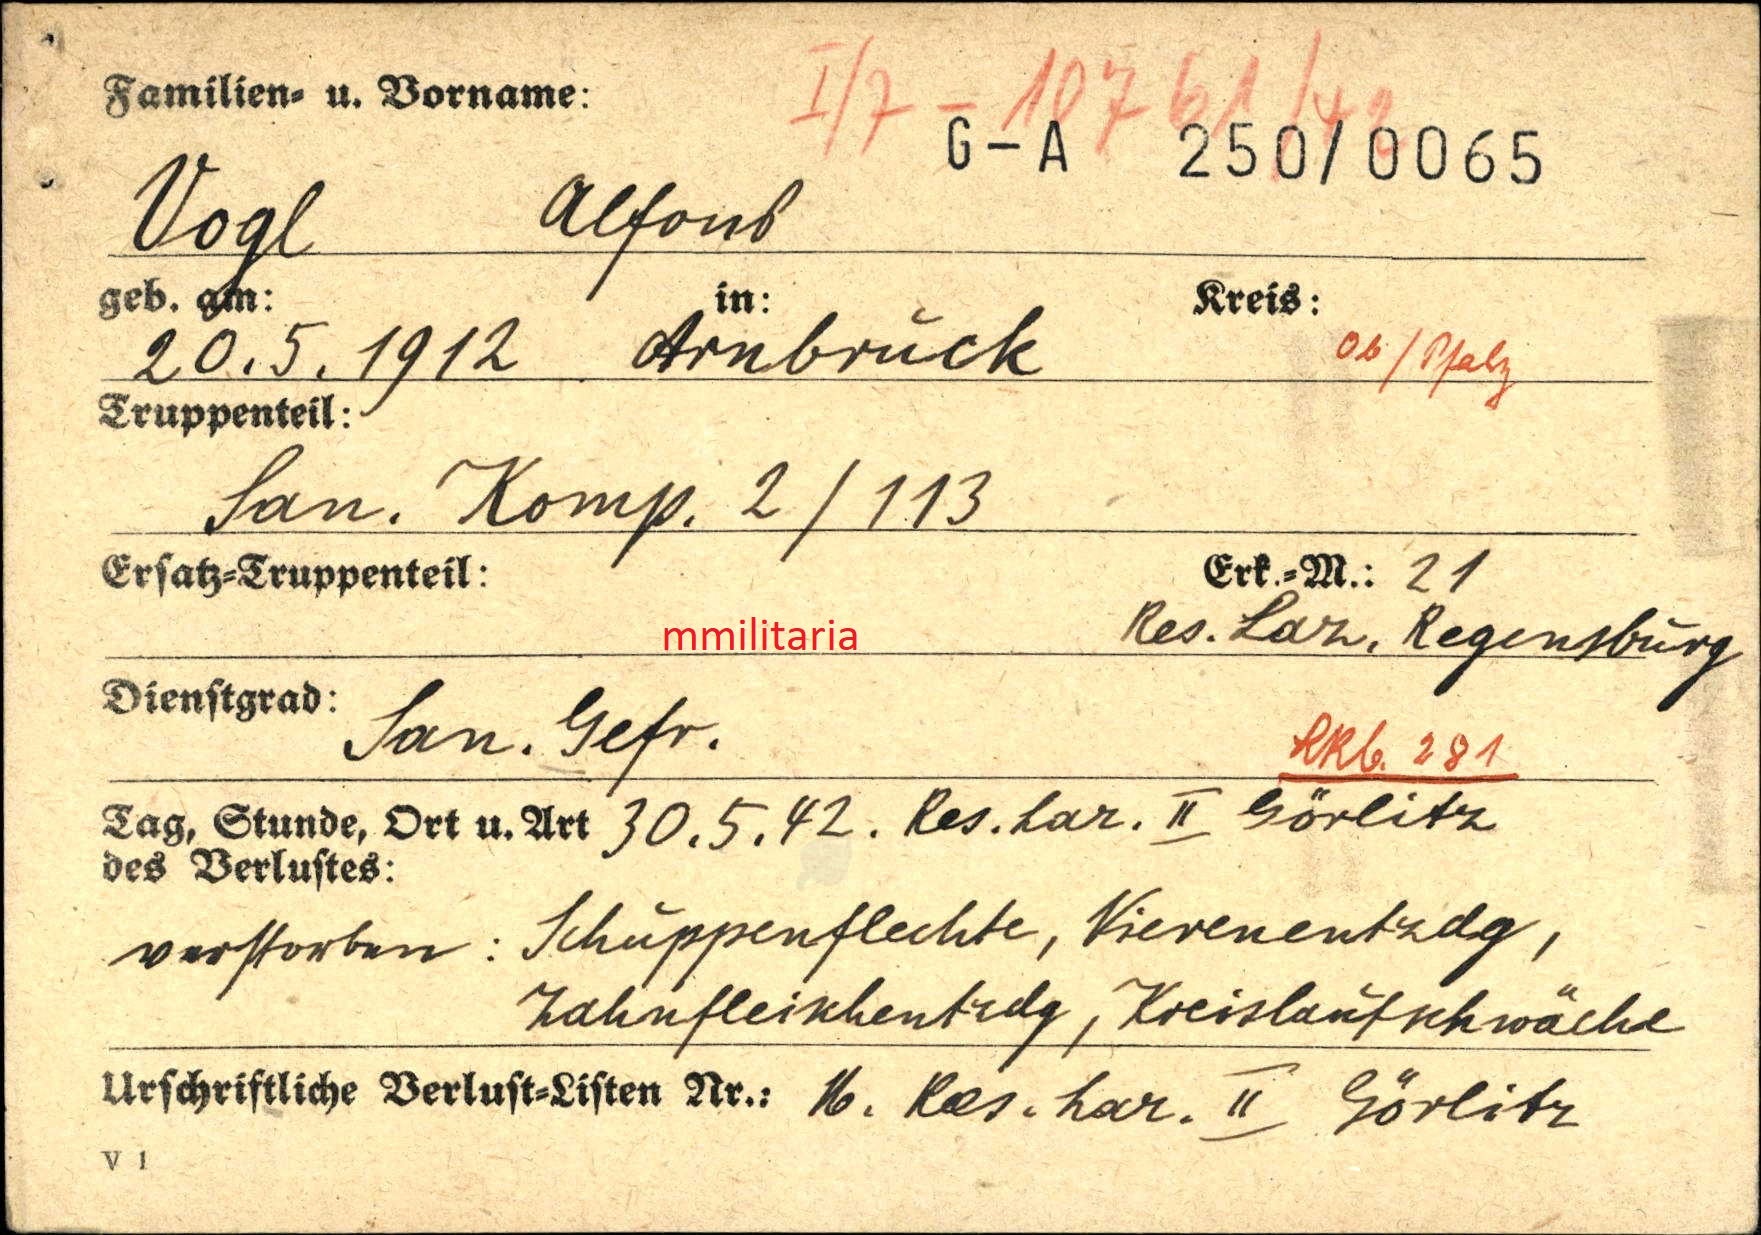 I/7 - 10761/42
Familien- u. Vorname:
G-A 250/0065
Vogl Alfons
geb. am: in: Kreis:
20.5.1912 Arnbrück Ob/Pfalz
Truppenteil:
San. Komp. 2/113
Ersatz-Truppenteil: Erk.-M.: 21
mmilitaria
Res. Laz. Regensburg
Dienstgrad: San. Gefr.
281
Tag, Stunde, Ort u. Art 30.5.42. Res. Laz. II Görlitz
des Verlustes:
verstorben: Schuppenflechte, Nierenentzdg,
Zahnfleischentzdg, Kreislaufschwäche
Urschriftliche Verlust-Listen Nr.: 16. Res. Laz. II Görlitz
V 1